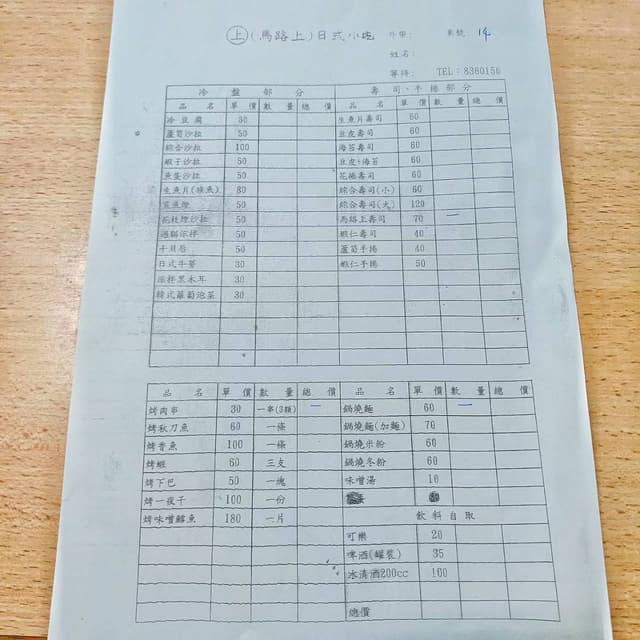 上(馬路上)日式小吃 外帶: 桌號: 14
姓名:
等待: TEL:8380156
冷盤部分 壽司、手捲部分
品名 單價 數量 總價 品名 單價 數量 總價
冷豆腐 30 生魚片壽司 60
蘆筍沙拉 50 豆皮壽司 60
綜合沙拉 100 海苔壽司 60
蝦子沙拉 50 豆皮+海苔 60
魚蛋沙拉 50 花捲壽司 60
生魚片(旗魚) 80 綜合壽司(小) 60
50 綜合壽司(大) 120
花枝沙拉 50 馬路上壽司 70 一
過貓涼拌 50 蝦仁壽司 40
干貝唇 50 蘆筍手捲 40
日式牛蒡 30 蝦仁手捲 50
涼拌黑木耳 30
韓式蘿蔔泡菜 30
品名 單價 數量 總價 品名 單價 數量 總價
烤肉串 30 一串(3顆) 一 鍋燒麵 60 一
烤秋刀魚 60 一條 鍋燒麵(加麵) 70
烤香魚 100 一條 鍋燒米粉 60
烤蝦 60 三支 鍋燒冬粉 60
烤下巴 50 一塊 味噌湯 10
烤一夜干 100 一份
烤味噌鱈魚 180 一片 飲料自取
可樂 20
啤酒(罐裝) 35
冰清酒200cc 100
總價